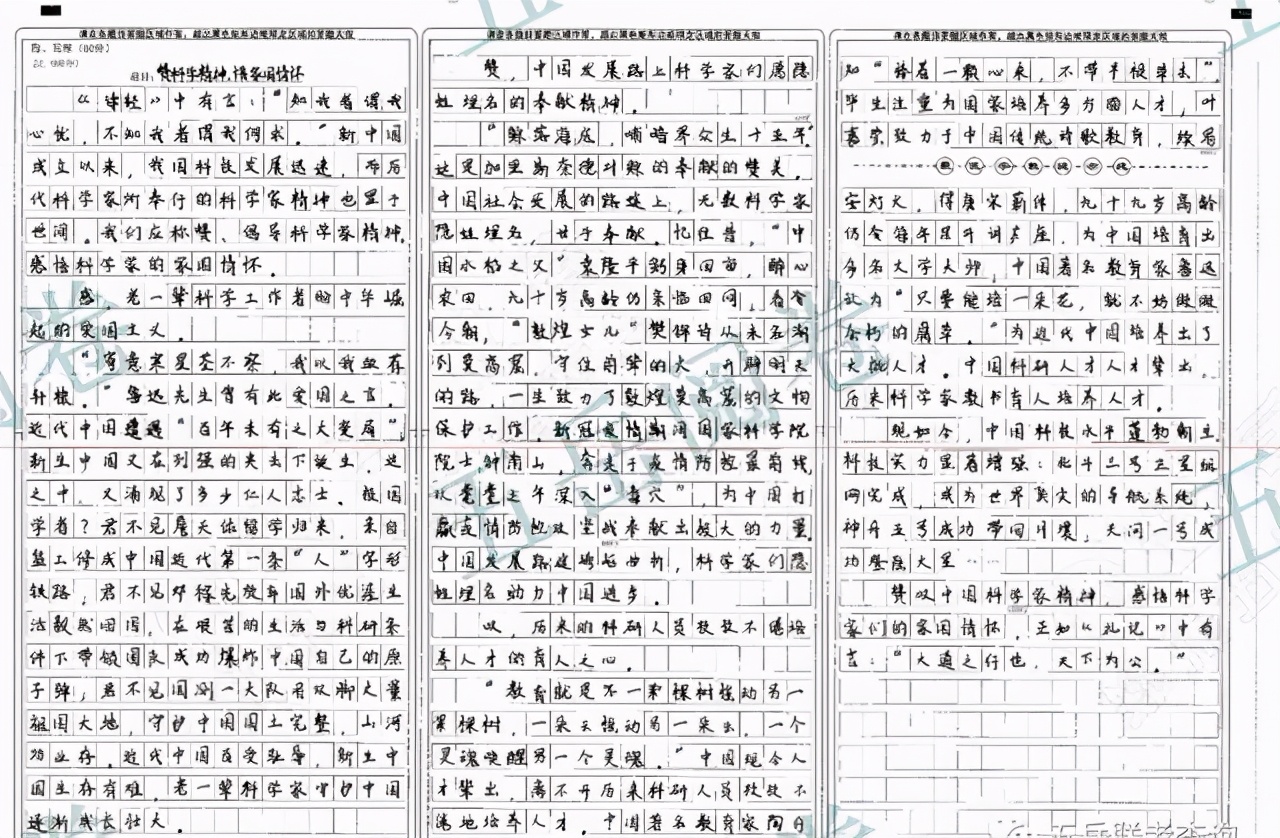 请在各题目的答题区域内作答，超出黑色矩形边框限定区域的答案无效
四、写作（60分）
题目：赞科学精神，悟家国情怀
《诗经》中有言：“知我者谓我
心忧，不知我者谓我何求。”新中国
成立以来，我国科技发展迅速，而历
代科学家所奉行的科学家精神也置于
世间。我们应称赞、倡导科学家精神，
感悟科学家的家国情怀。
感，老一辈科学工作者胸中华崛
起的爱国主义。
“寄意寒星荃不察，我以我血荐
轩辕。”鲁迅先生曾有此爱国之言。
近代中国遭遇“百年未有之大变局”，
新生中国又在列强的夹击下诞生，这
之中，又涌现了多少仁人志士、报国
学者？君不见詹天佑留学归来，亲自
监工修成中国近代第一条“人”字形
铁路；君不见邓稼先放弃国外优渥生
活毅然回国，在艰苦的生活与科研条
件下带领团队成功爆炸中国自己的原
子弹；君不见国测一大队用双脚丈量
祖国大地，守护中国国土完整，山河
为业存。近代中国百受耻辱，新生中
国生存有难，老一辈科学家守护中国
逐渐成长壮大。
请在各题目的答题区域内作答，超出黑色矩形边框限定区域的答案无效
赞，中国发展路上科学家们愿隐
姓埋名的奉献精神。
“鲸落海底，哺暗界众生十五年”
这是加里易奈德对鲸的奉献的赞美。
中国社会发展的路途上，无数科学家
隐姓埋名，甘于奉献。忆往昔，“中
国水稻之父”袁隆平躬身田亩，醉心
农田，九十岁高龄仍亲临田间，看今
今朝，“敦煌女儿”樊锦诗从未名湖
到莫高窟，守住前辈的火，开辟明天
的路，一生致力了敦煌莫高窟的文物
保护工作。新冠疫情期间国家科学院
院士钟南山，奔走于疫情防控最前线，
以耄耋之年深入“毒穴”，为中国打
赢疫情防控攻坚战奉献出极大的力量
中国发展路途崎长曲折，科学家们隐
姓埋名助力中国进步。
以，历来的科研人员孜孜不倦培
养人才的育人之心。
“教育就是不一棵树摇动另一
棵树，一朵云推动另一朵云，一个
灵魂唤醒另一个灵魂。”中国现今人
才辈出，离不开历来科研人员孜孜不
倦地培养人才。中国著名教育家陶行
请在各题目的答题区域内作答，超出黑色矩形边框限定区域的答案无效
知“捧着一颗心来，不带半根草去”，
毕生注重为国家培养多方面人才，叶
嘉莹致力于中国传统诗歌教育，续易
安灯火，得唐宋薪传，九十九岁高龄
仍会每年呈开讲声座，为中国培育出
多名文学大师，中国著名教育家鲁迅
认为“只要能培一朵花，就不妨做做
会朽的腐草。”为近代中国培养出了
大批人才。中国科研人才人才辈出，
历来科学家教书育人培养人才。
现如今，中国科技水平蓬勃树立，
科技实力显著增强：北斗三号卫星组
网完成，成为世界领先的导航系统，
神舟五号成功带回月壤，天问一号成
功登陆火星……
赞叹中国科学家精神，感悟科学
家们的家国情怀，正如《礼记》中有
言：“大道之行也，天下为公。”
五岳阅卷
五岳联考查询